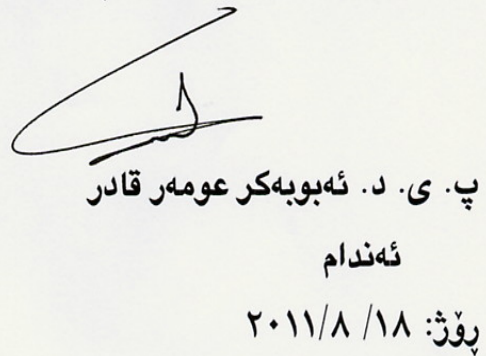 پ. ی. د. ئەبوبەکر عومەر قادر
ئەندام
ڕۆژ: ١٨/ ٨/ ٢٠١١